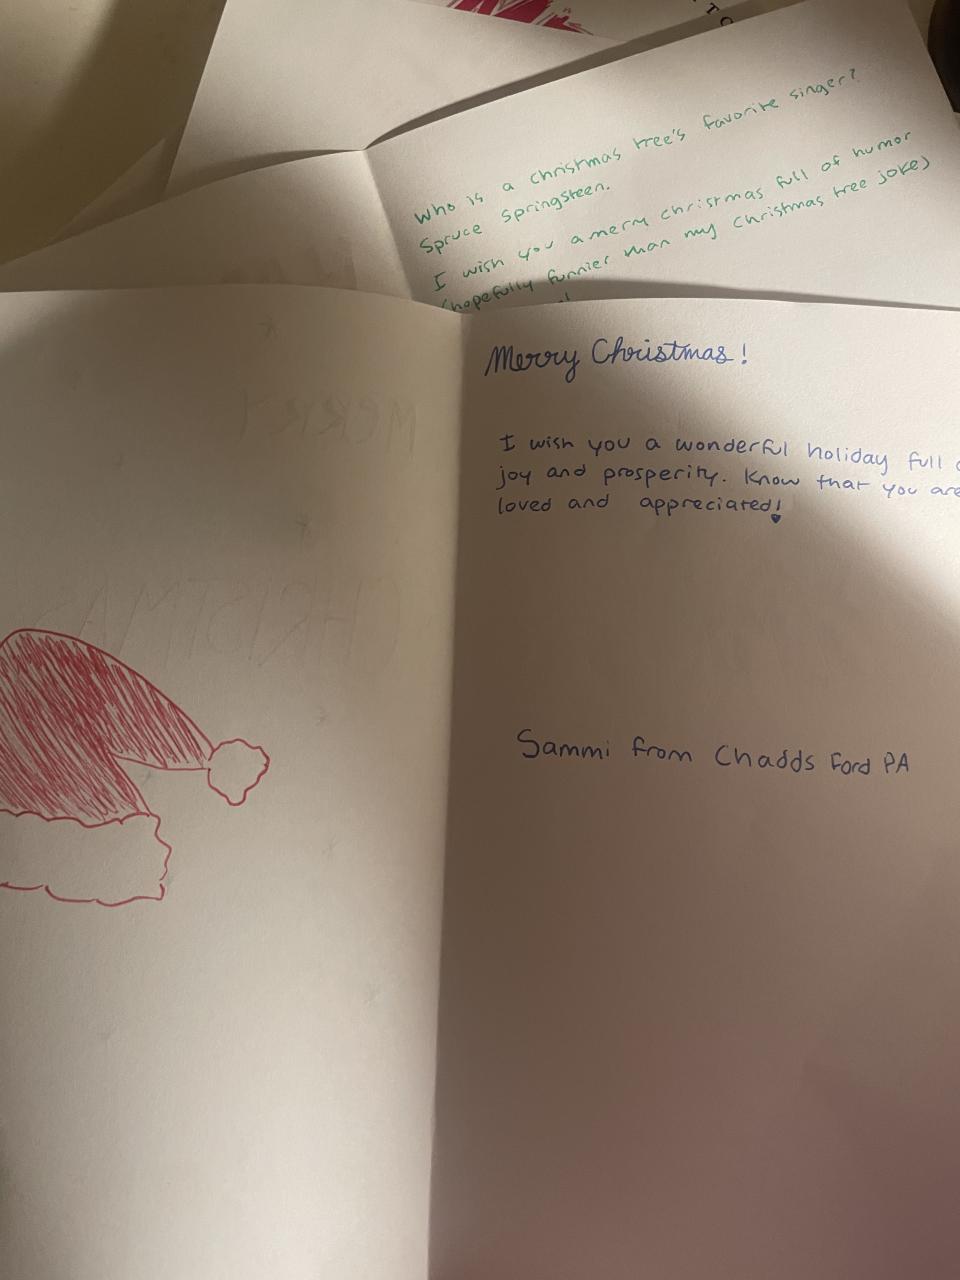 TO
Who is a christmas tree's favorite singer?
Spruce Springsteen.
I wish you a merry christmas full of humor
(hopefully funnier than my christmas tree joke)
Merry Christmas!
I wish you a wonderful holiday full
joy and prosperity. Know that you are
loved and appreciated!
Sammi from Chadds Ford PA
MERRY
CHRISTMAS